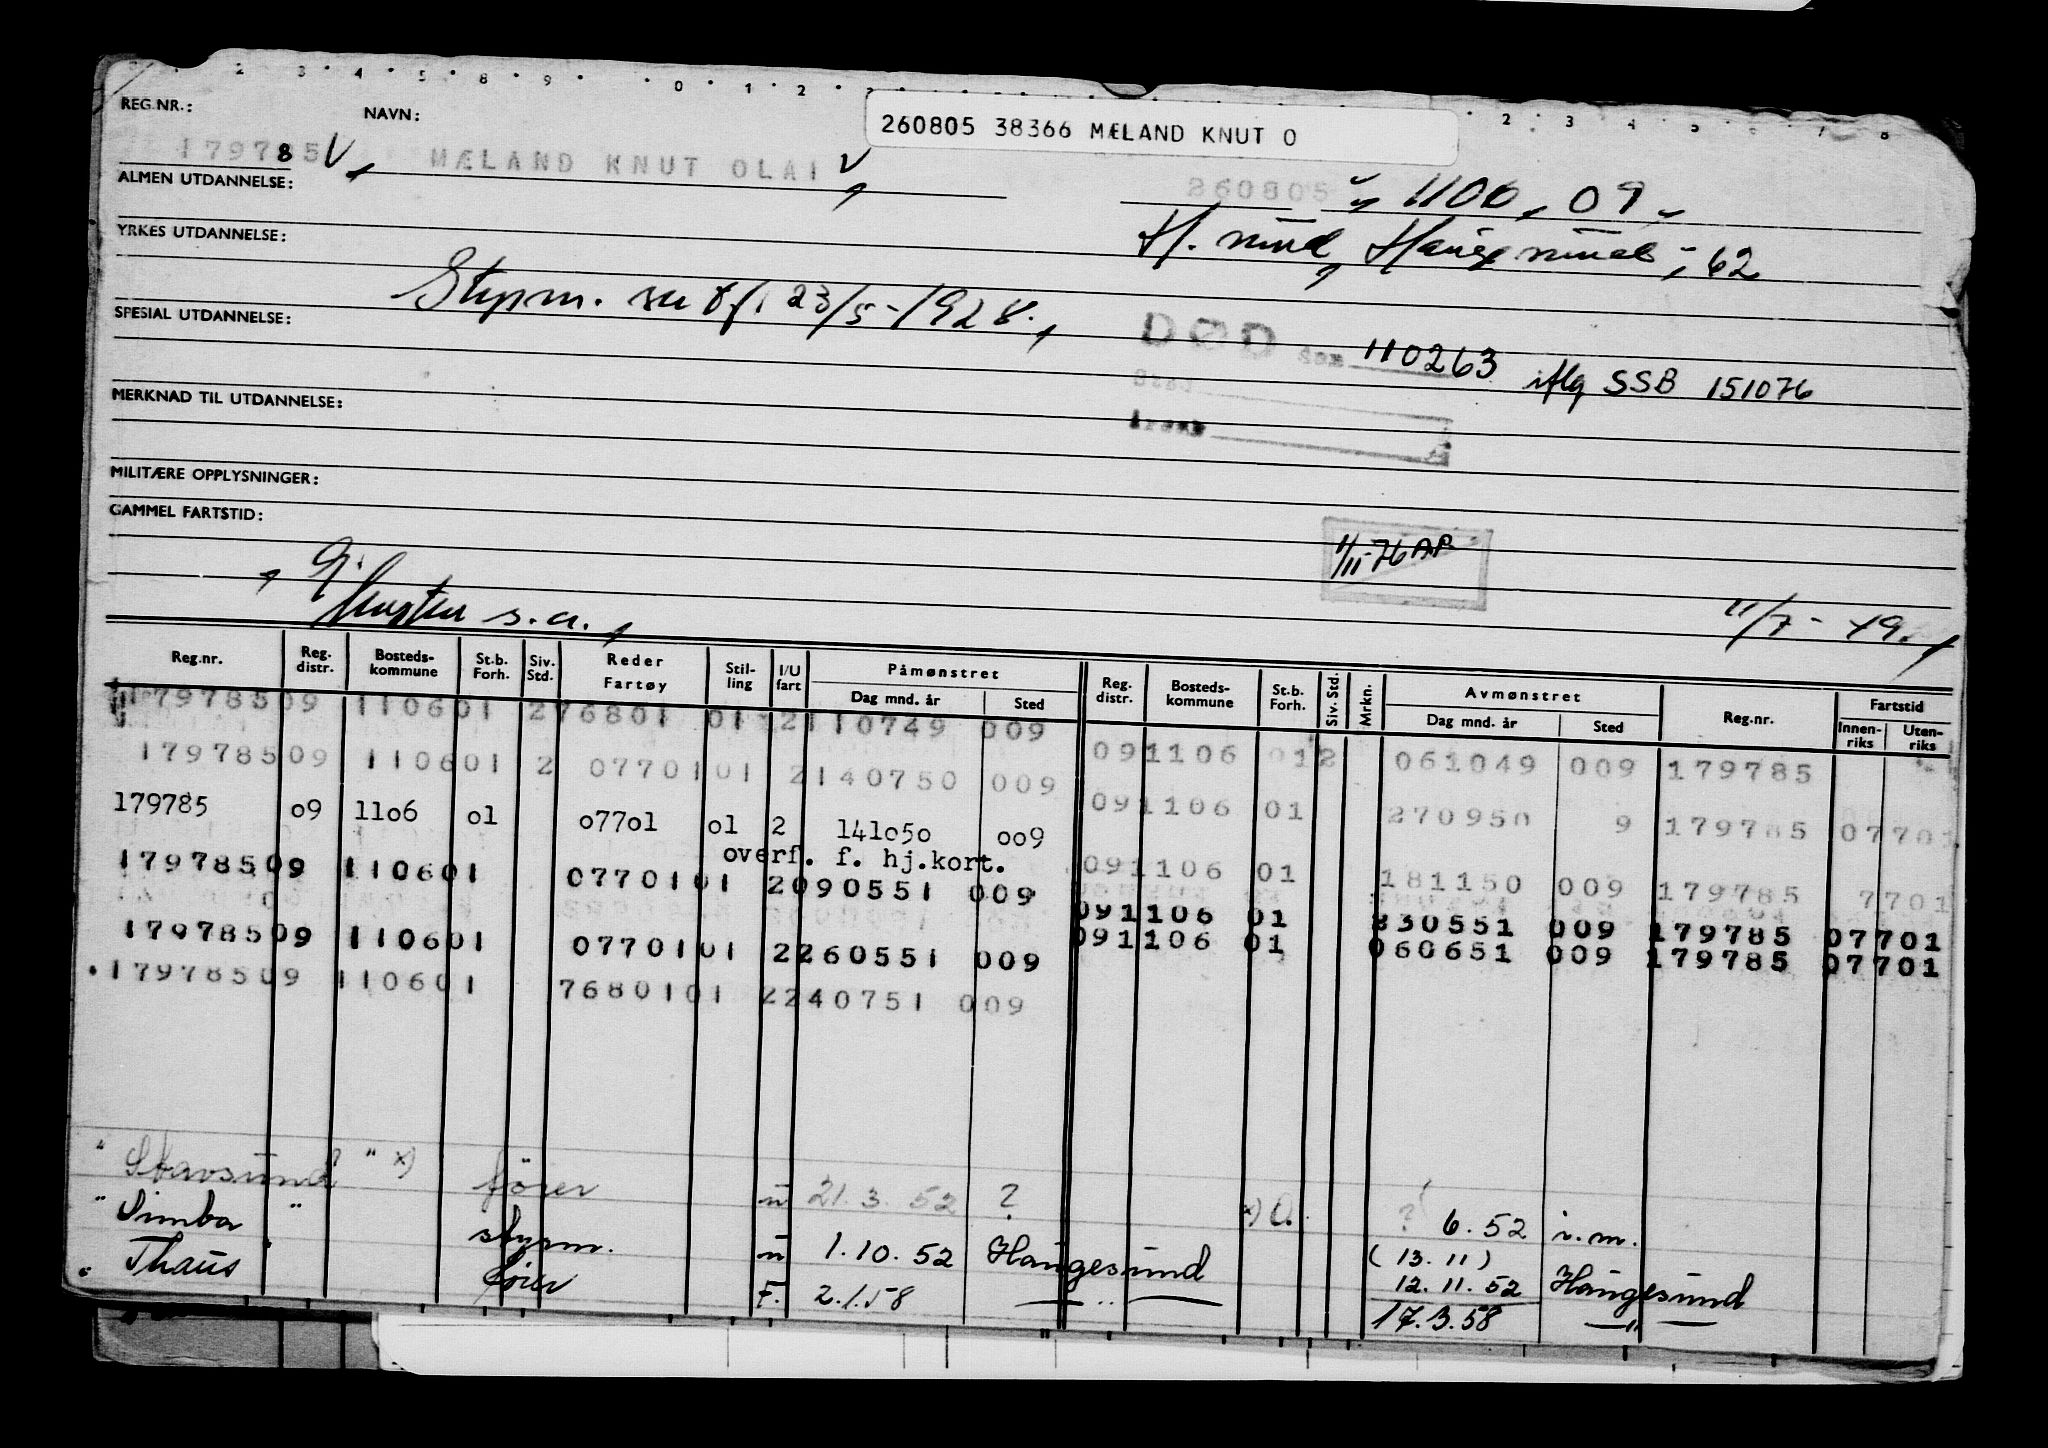 2 3 4 5 8 9 0 1 2 2 3 4 5 6 7 8
REG.NR.: NAVN:
260805 38366 MÆLAND KNUT O
179785 8 V MÆLAND KNUT OLAI V
260805 1106, 09
ALMEN UTDANNELSE:
YRKES UTDANNELSE:
62
Styrm. 23/5-1928.
SPESIAL UTDANNELSE:
DØD den 110263 iflg SSB 151076
Sted
Årsak
MERKNAD TIL UTDANNELSE:
MILITÆRE OPPLYSNINGER:
GAMMEL FARTSTID:
11/11-76 AP
s.a. 11/7-49.
Reg.nr. Reg. distr. Bosteds-kommune St.b. Forh. Siv. Std. Reder Fartøy Stil-ling I/U fart Påmønstret Dag mnd. år Sted Reg. distr. Bosteds-kommune St.b. Forh. Siv. Std. Mrkn. Avmønstret Dag mnd. år Sted Reg.nr. Fartstid Innen-riks Uten-riks
179785 09 1106 01 2 76801 01 2 110749 009
09 1106 01 2 061049 009 179785
179785 09 1106 01 2 07701 01 2 140750 009
09 1106 01 270950 9 179785 07701
179785 o9 11o6 o1 o77o1 o1 2 141o5o oo9
overf. f. hj.kort.
09 1106 01 181150 009 179785 7701
179785 09 1106 01 07701 01 2 090551 009
09 1106 01 230551 009 179785 07701
179785 09 1106 01 07701 01 2 260551 009
09 1106 01 060651 009 179785 07701
179785 09 1106 01 76801 01 2 240751 009
" Stavsund " x) fører u 21.3.52 ? x) O. ? 6.52 i.m.
" Simba " styrm. u 1.10.52 Haugesund (13.11) 12.11.52 Haugesund
" Thaus fører F. 2.1.58 — " — 17.3.58 — " —